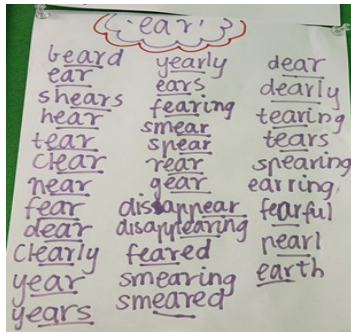 'ear'
beard
ear
shears
hear
tear
clear
near
fear
dear
clearly
year
years
yearly
ears
fearing
smear
spear
rear
gear
disappear
disappearing
feared
smearing
smeared
dear
dearly
tearing
tears
spearing
earring
fearful
pearl
earth